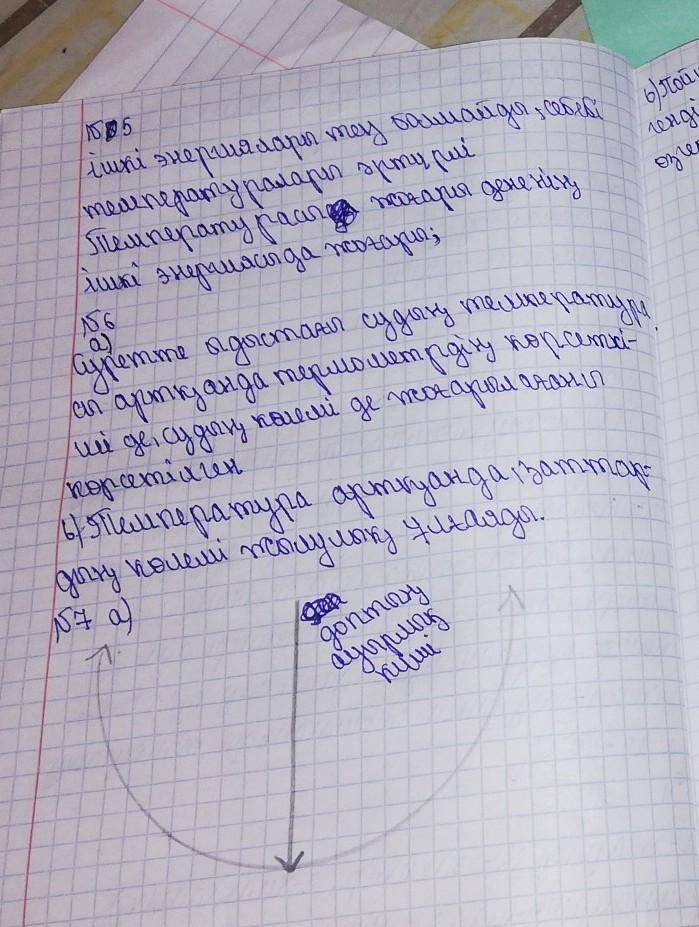 №5
ішкі энергиялары тең болмайды, себебі
температуралары әртүрлі
Температурасы жоғары дененің
ішкі энергиясы да жоғары;
№6
а)
Суретте ыдыстағы судың температура
сы артқанда термометрдің көрсеткі-
ші де, судың көлемі де жоғарылағаны
көрсетілген
b) Температура артқанда, заттар-
дың көлемі жылулық ұлғаяды.
№7 а)
доптың
ауырлық
күші
b) Той